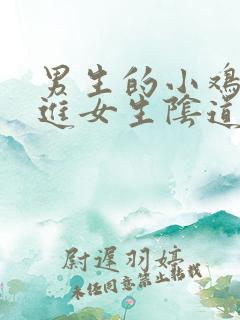 男生的小鸡
进女生陰道
尉遲羽婷
未经同意禁止转载